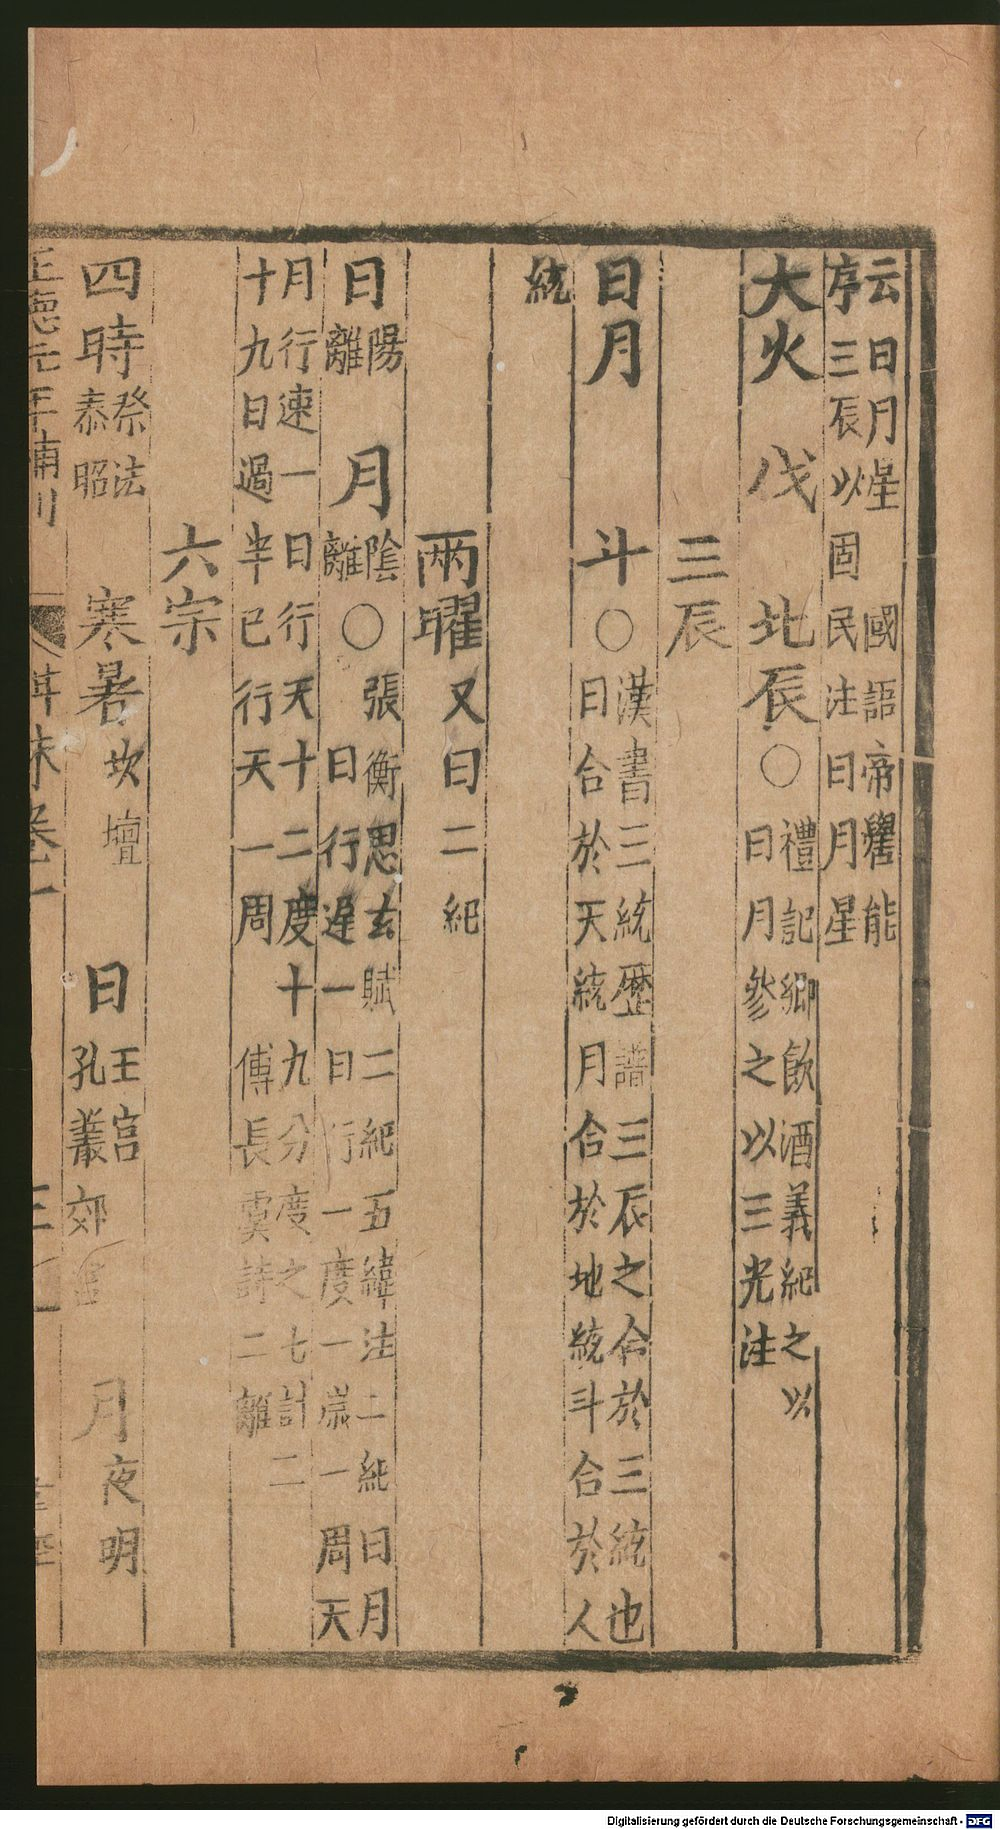 云日月星　國語帝嚳能
序三辰以固民注日月星
大火　伐　北辰○禮記鄉飲酒義紀之以
日月參之以三光注
三辰
日月　斗○漢書三統歷譜三辰之合於三統也
日合於天統月合於地統斗合於人
統
兩曜又曰二紀
日陽離　月陰離○張衡思玄賦二紀五緯注二紀日月
日行遲一日行一度一歲一周天
月行速一日行天十二度十九分度之七計二
十九日過半已行天一周　傅長虞詩二離
六宗
四時祭法泰昭　寒暑坎壇　日王宮孔叢郊　月夜明
正德元年補刊
卷一
三
Digitalisierung gefördert durch die Deutsche Forschungsgemeinschaft - DFG